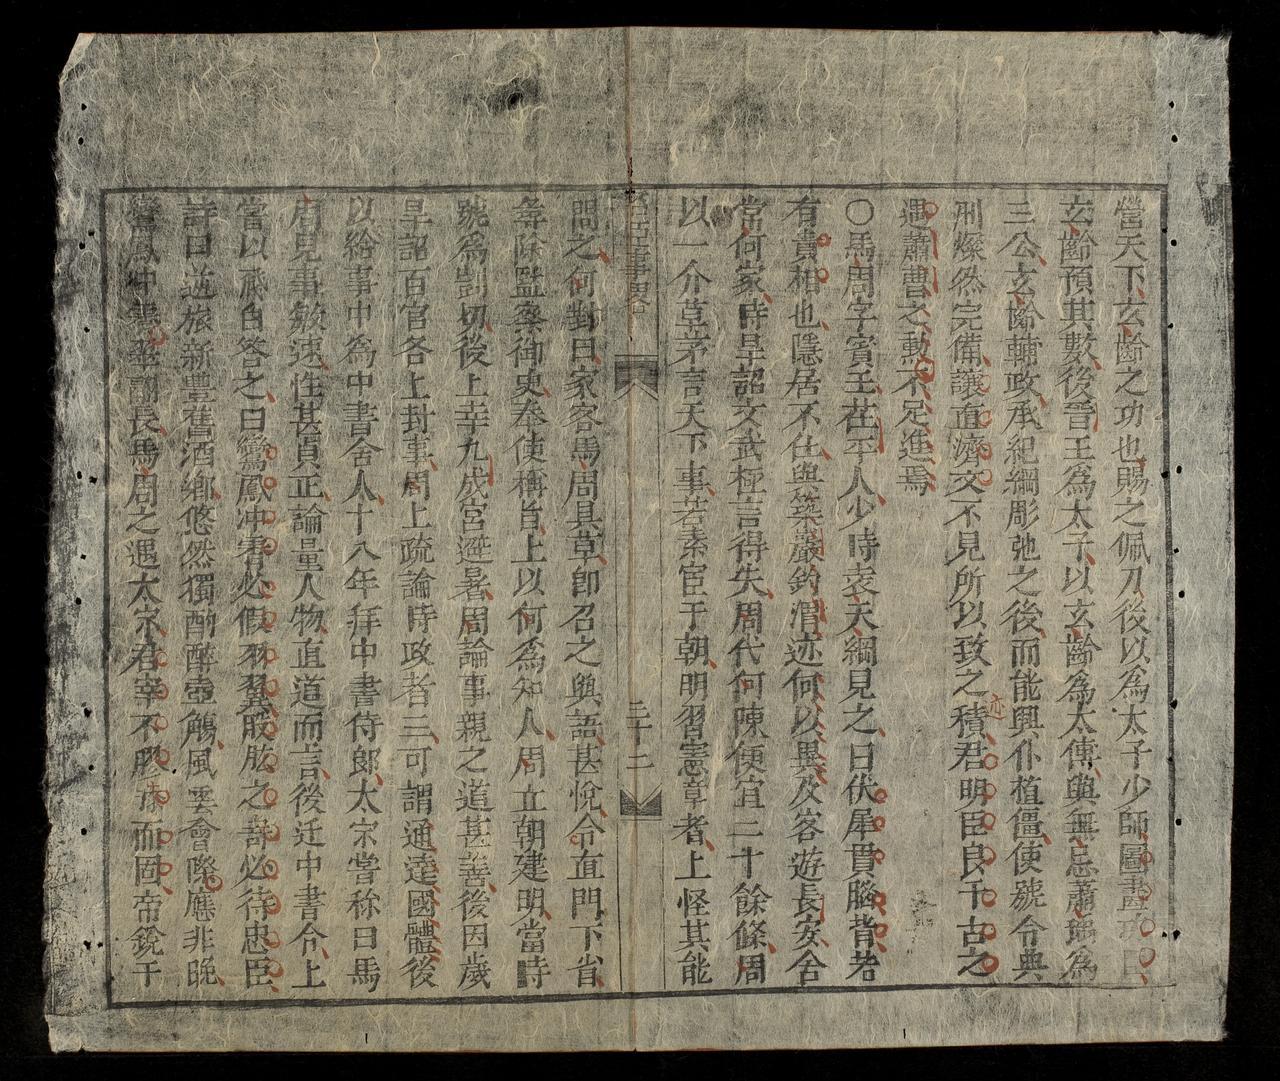 營天下玄齡之功也賜之佩刀後以為太子少師圖畫功臣
玄齡預其數後晉王為太子以玄齡為太傅與無忌蕭瑀為
三公玄齡輔政承紀綱彫弛之後而能興仆植僵使號令典
刑燦然完備讓直濟文不見所以致之積君明臣良千古之
迹
遇蕭曹之勲不足進焉
〇馬周字賓王茌平人少時袁天綱見之曰伏犀貫腦背若
有責相也隱居不仕與築巖釣渭迹何以異及客遊長安合
常何家時旱詔文武極言得失周代何陳便宜二十餘條周
以一介草茅言天下事若素宦于朝明習憲章者上怪其能
事畧
三十二
問之何對曰家客馬周具草卽召之與語甚悅令直門下省
尋除監察御史奉使稱旨上以何為知人周立朝建明當時
號為剴切後上幸九成宮避暑周論事親之道甚善後因歲
旱詔百官各上封事周上疏論時政者三可謂通達國體後
以給事中為中書舍人十八年拜中書侍郎太宗嘗稱曰馬
周見事敏速性甚貞正論量人物直道而言後迁中書令上
當以飛白答之曰鸞鳳冲霄必假羽翼股肱之寄必待忠臣
詩曰逆旅新豐舊酒鄉悠然獨酌醉壺觴風雲會際應非晚
鸞鳳冲霄羽翮長馬周之遇太宗君宰不膠漆而固帝銳于